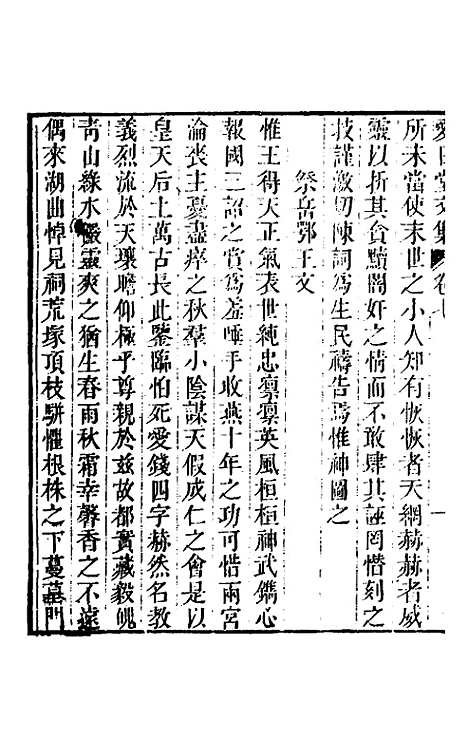 愛日堂文集卷七
所未當使末世之小人知有恢恢者天網赫赫者威
靈以折其貪黷闇奸之情而不敢肆其誣罔惜刻之
技謹激切陳詞爲生民禱告焉惟神圖之
祭岳鄂王文
惟王得天正氣表世純忠稟稟英風桓桓神武鐫心
報國三詔之賞爲羞唾手收燕十年之功可惜兩宮
淪喪主憂盡瘁之秋羣小陰謀天假成仁之會是以
皇天后土萬古長此鑒臨怕死愛錢四字赫然名教
義烈流於天壤瞻仰極乎尊親於兹故都實藏毅魄
靑山綠水儼靈爽之猶生春雨秋霜幸馨香之不遠
偶來湖曲悼見祠荒塚頂枝駢懼根株之下蔓墓門